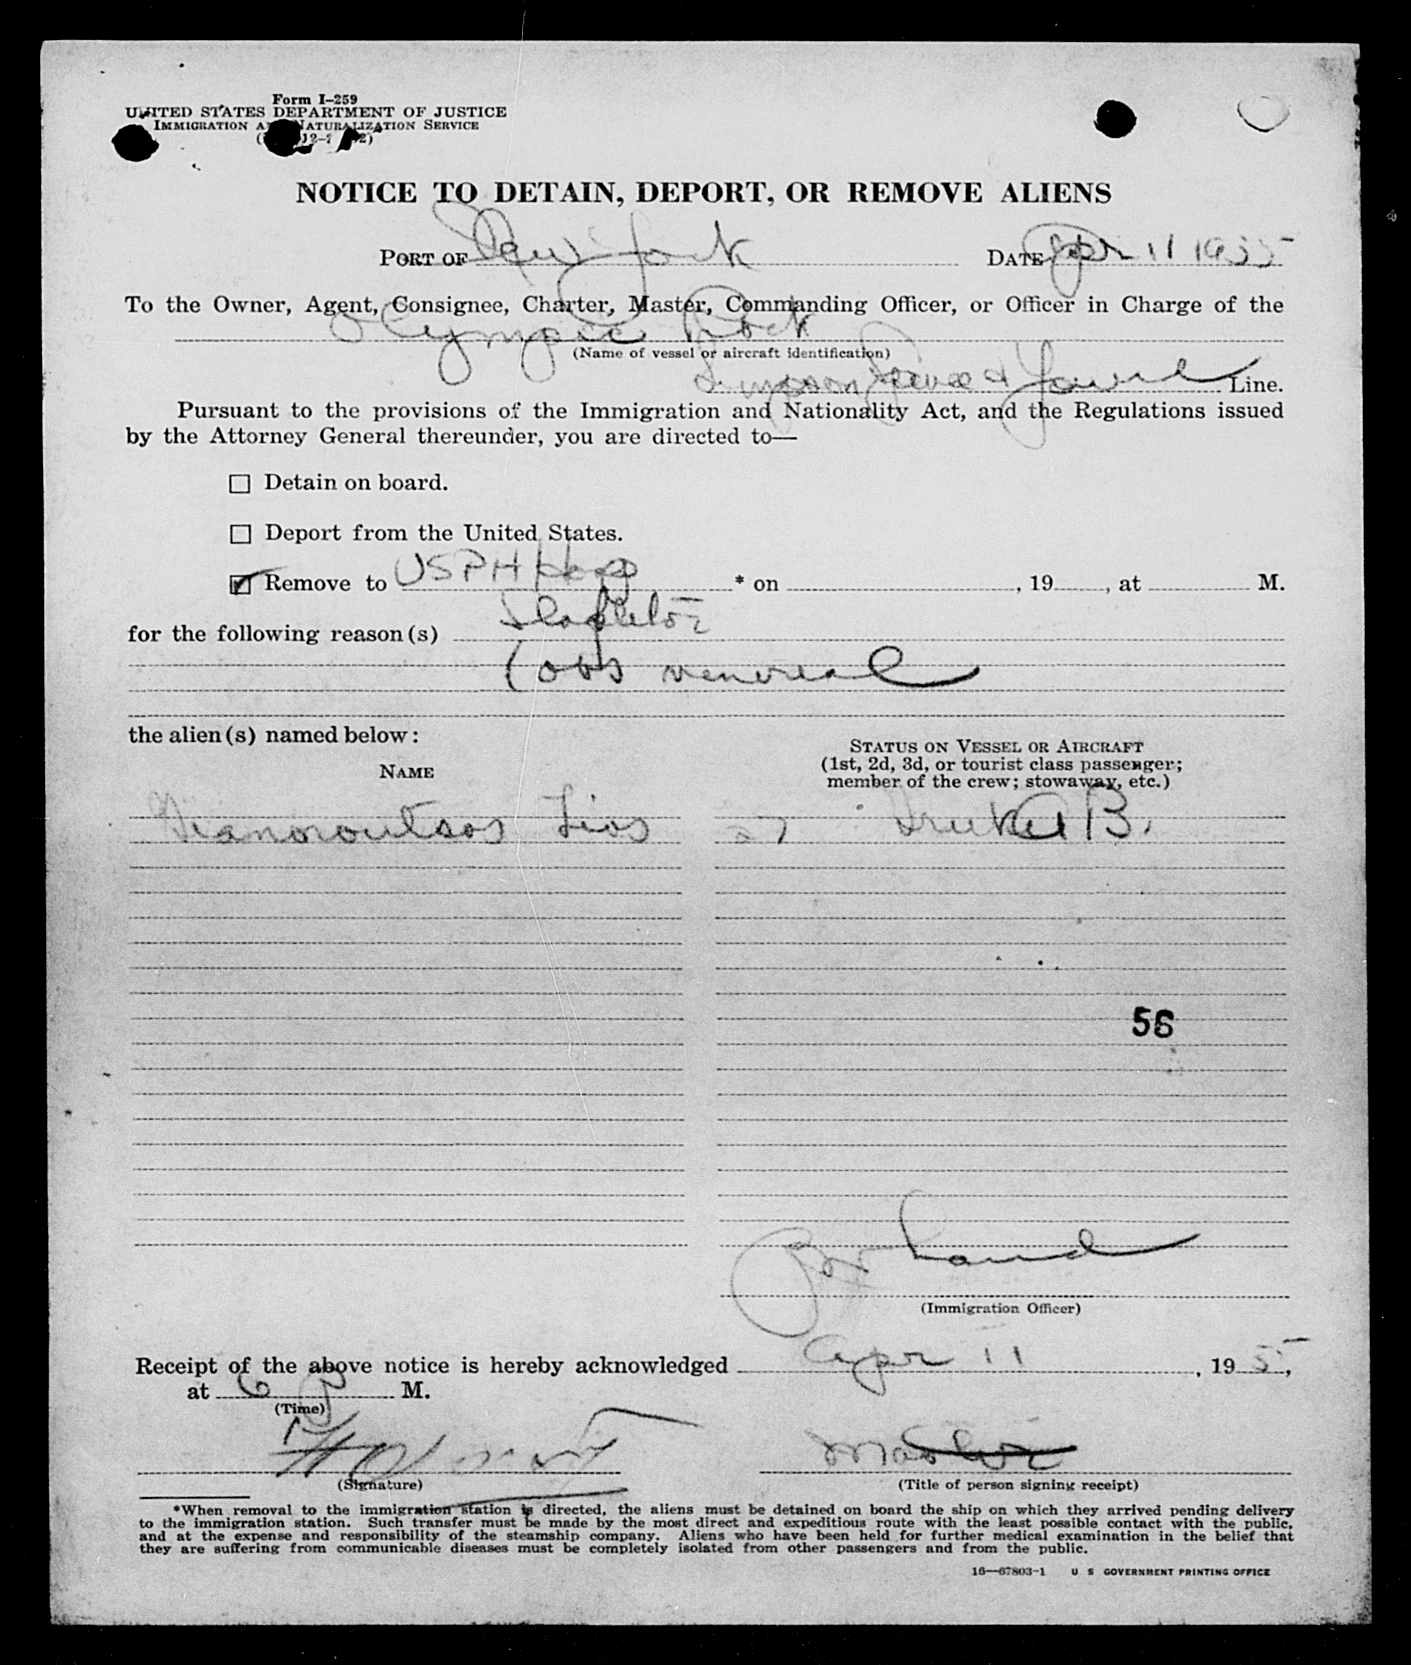 Form I-259
UNITED STATES DEPARTMENT OF JUSTICE
IMMIGRATION AND NATURALIZATION SERVICE
NOTICE TO DETAIN, DEPORT, OR REMOVE ALIENS
PORT OF New York DATE Apr 11 1955
To the Owner, Agent, Consignee, Charter, Master, Commanding Officer, or Officer in Charge of the
Olympic Rock
(Name of vessel or aircraft identification)
Simpson Spence & Young Line.
Pursuant to the provisions of the Immigration and Nationality Act, and the Regulations issued
by the Attorney General thereunder, you are directed to—
Detain on board.
Deport from the United States.
Remove to USPH Hosp * on , 19 , at M.
Stapleton
for the following reason(s)
(obs venereal
the alien(s) named below:
NAME
STATUS ON VESSEL OR AIRCRAFT
(1st, 2d, 3d, or tourist class passenger;
member of the crew; stowaway, etc.)
27
56
(Immigration Officer)
Receipt of the above notice is hereby acknowledged Apr 11, 1955,
at 6 P M.
(Time)
Master
(Signature) (Title of person signing receipt)
*When removal to the immigration station is directed, the aliens must be detained on board the ship on which they arrived pending delivery
to the immigration station. Such transfer must be made by the most direct and expeditious route with the least possible contact with the public,
and at the expense and responsibility of the steamship company. Aliens who have been held for further medical examination in the belief that
they are suffering from communicable diseases must be completely isolated from other passengers and from the public.
16—67803-1 U S GOVERNMENT PRINTING OFFICE